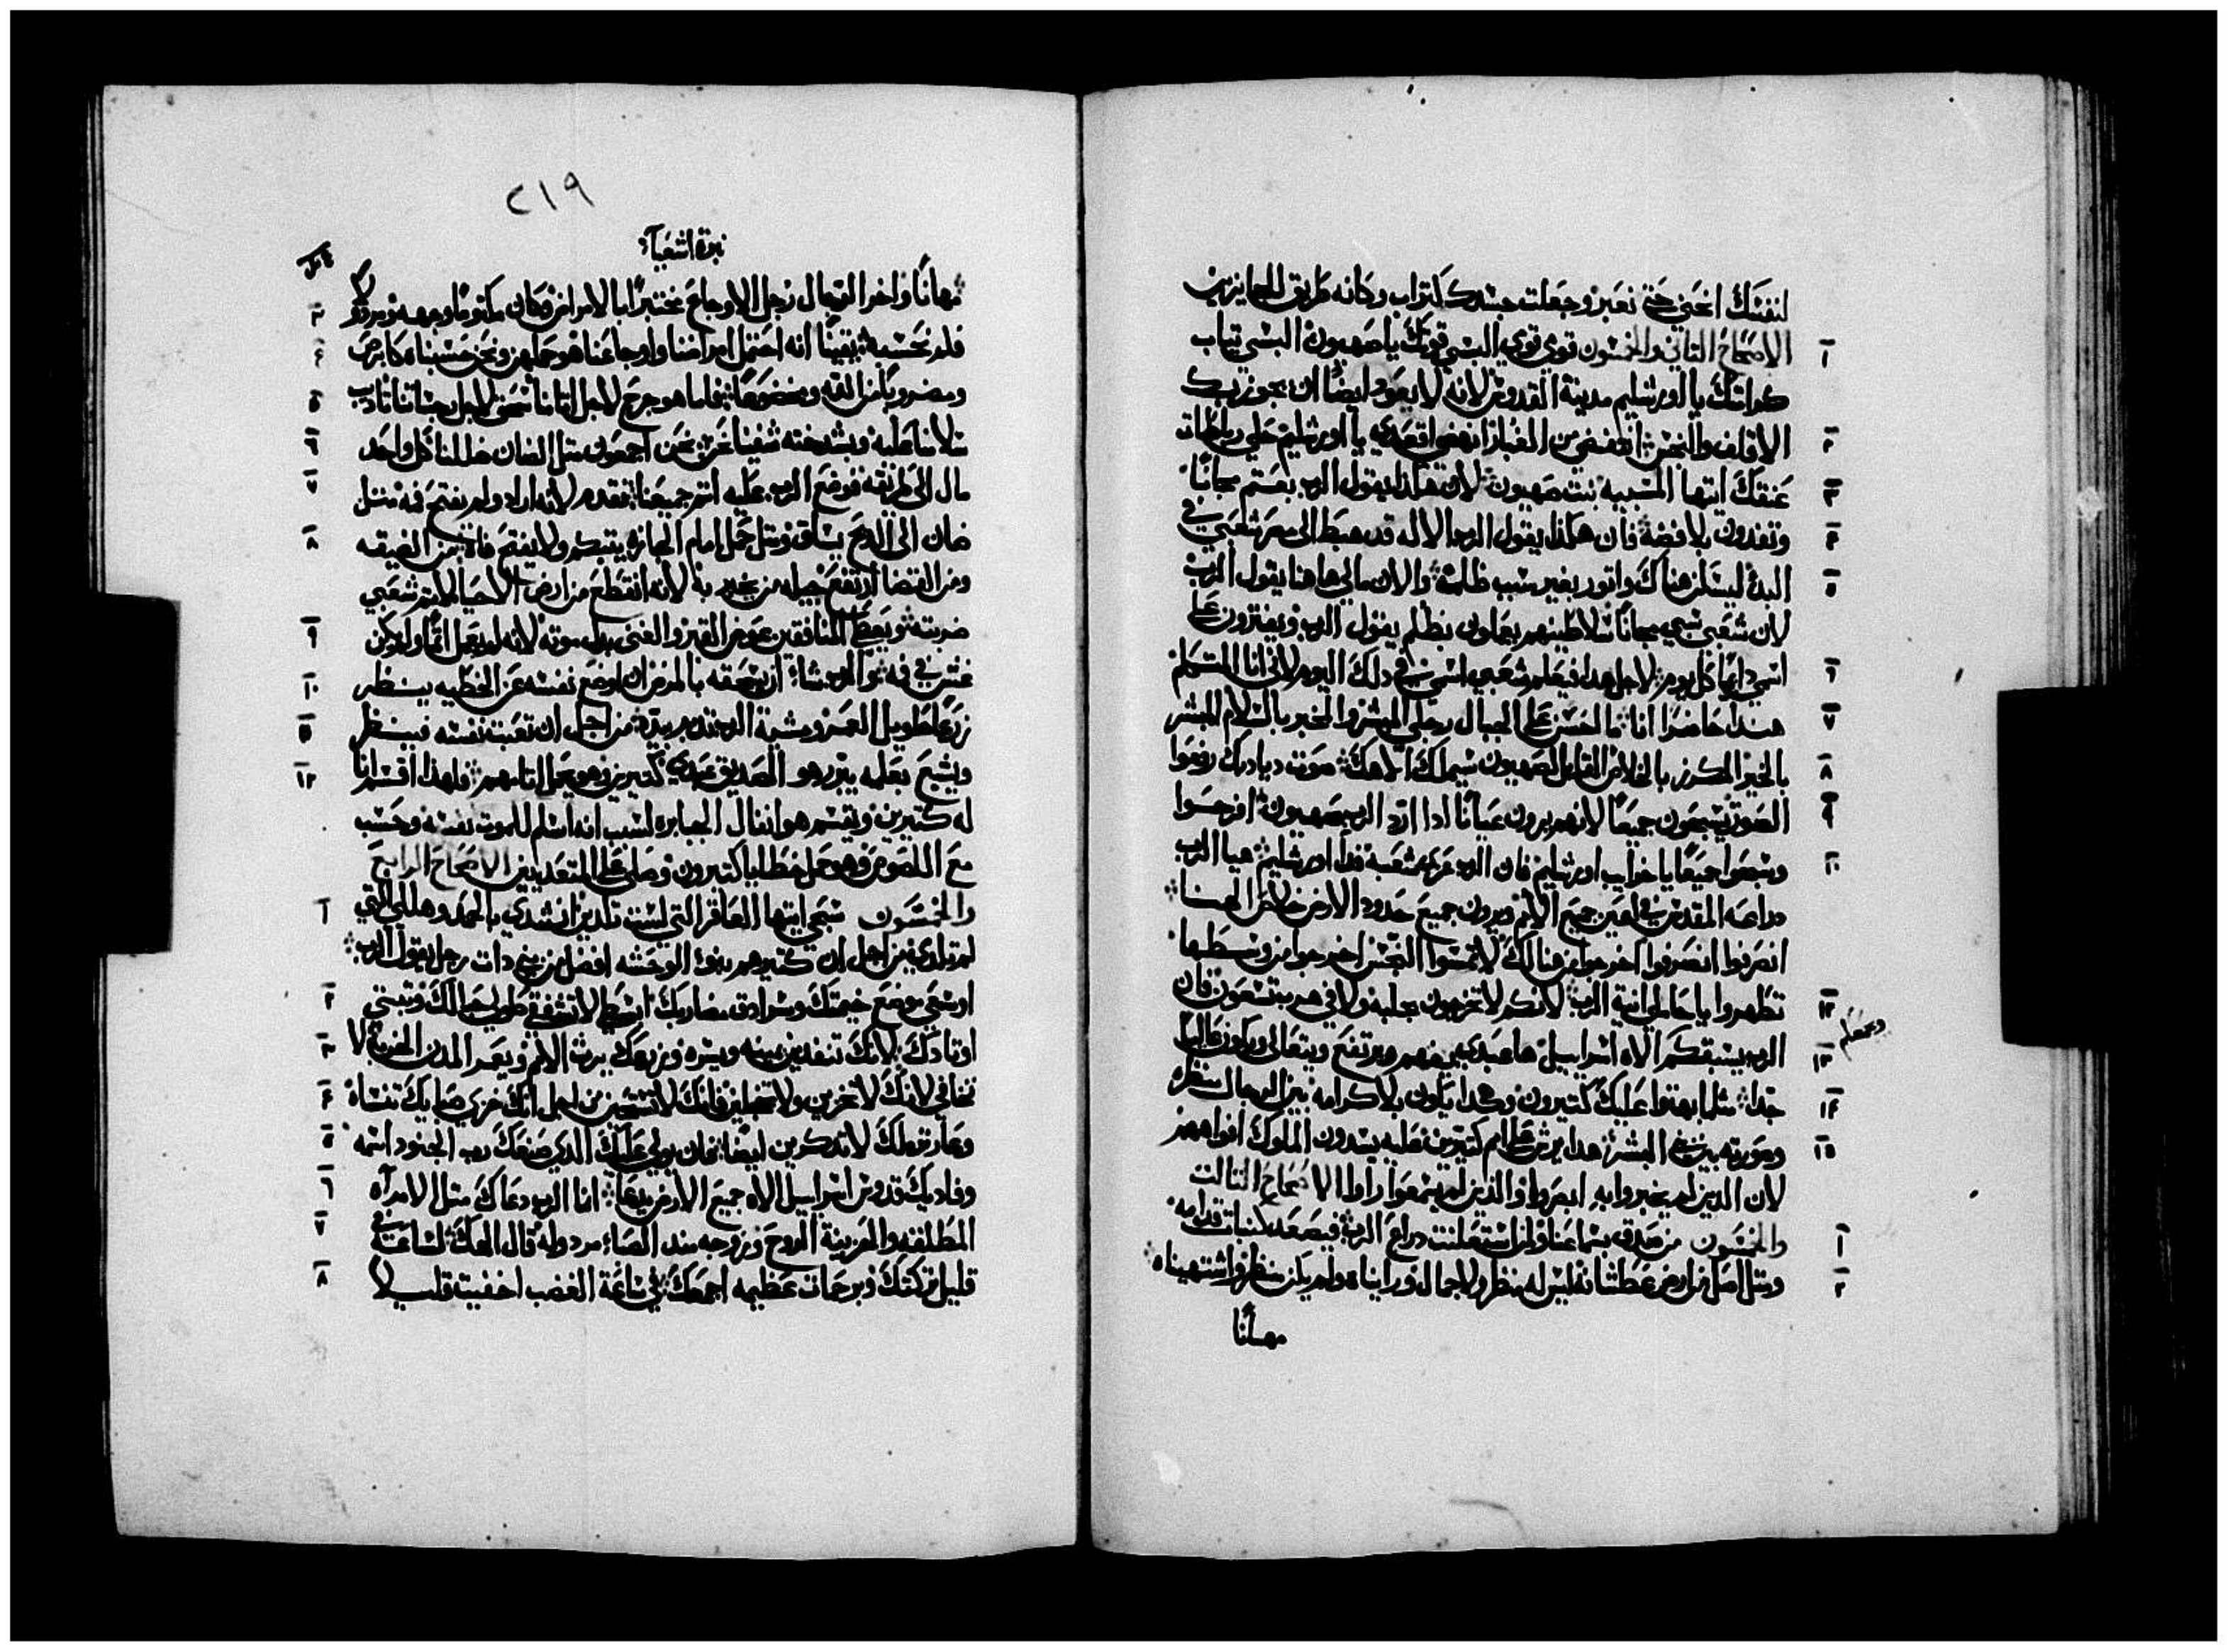 لنفسك انحني حتي نعبر وجعلت جسدك كتراب وكانه طريق للجايزين
الاصحاح التاني والخمسون قومي قومي البسي قوتك ياصهيون البسي تياب
كرامتك يا اورشليم مدينة القدوس لانه لا يعود ايضا ان يجوز بك
الاقلف والنجس انتفضي من الغبار انهضي اقعدي يا اورشليم حلي رباطات
عنقك ايتها المسبيه بنت صهيون لان هكذا يقول الرب بعتم مجانا
وتفدون بلا فضة فان هكذا يقول الرب الاله قد هبط الى مصر شعبي في
البدئ ليسكن هناك واتور بغير سبب ظلمه والان مالي هاهنا يقول الرب
لان شعبي سبي مجانا سلاطينهم يعملون بظلم يقول الرب ويفترون على
اسمي دايما كل يوم لاجل هدا فيعلم شعبي اسمي في دلك اليوم لاني انا المتكلم
هندا حاضرا انا ما احسن على الجبال رجلي المبشر والمخبر بالسلام المبشر
بالخير المكرز بالخلاص القايل لصهيون سيملك الاهك صوت ديادبك رفعوا
الصوت يسبحون جميعا لانهم يرون عيانا ادا ارد الرب صهيون افرحوا
وسبحوا جميعا يا خرايب اورشليم فان الرب عزى شعبه فدا اورشليم هيا الرب
دراعه المقدس في اعين جميع الامم ويرون جميع حدود الارض خلاص الهنا
انصرفوا انصرفوا اخرجوا من هنالك لا تمسوا النجس اخرجوا من وسطها
تطهروا يا حاملي انية الرب لانكم لا تخرجون بجلبه ولا في هرب تسعون فان
الرب يسبقكم الاه اسراييل ها عبدي يفهم ويرتفع ويتعالى ويكون عاليا
جدا مثلما بهتوا عليك كتيرون وهكدا يكون بلا كرامه بين الرجال منظره
وصورته بين بني البشر هدا يرش على امم كتيرين عليه يسدون الملوك افواههم
لان الدين لم يخبروا به ابصروا والذين لم يسمعوا راوا الاصحاح التالت
والخمسون من صدق بسماعنا ولمن استعلنت دراع الرب فيصعد كنبات قدامه
ومثل اصل من ارض عطشانه ليس له منظر ولا جمال ورايناه ولم يكن منظر واشتهيناه
مهانا
٢١٩
نبوة اشعيا
مهانا واخر الرجال رجل الاوجاع مختبرا بالامراض وكان مكتوما وجهه ومردولا
فلم نحسبه يقينا انه احتمل امراضنا واوجاعنا هو حملهم ونحن حسبناه كابرص
ومضروبا من الله ومخضوعا فاما هو جرح لاجل اتامنا سحق لاجل جناتنا تاديب
سلامنا عليه وبشدخته شفينا نحن نحن اجمعون متل الضان ضللنا كل واحد
مال الى طريقه فوضع الرب عليه اتم جميعنا تقدم لانه اراد ولم يفتح فمه متل
ضان الى الدبح يساق ومتل حمل امام الجازه يتبكم ولا يفتح فاه من الضيقه
ومن القضا ارتفع جيله من يخبر به لانه انقطع من ارض الاحيا لاتم شعبي
ضربته ويعطي المنافقين عوض القبر والغني بدل موته لانه لم يعمل اتما ولم يكن
غش في فمه والرب شا ان يسحقه بالمرض ان وضع نفسه عن الخطيه ينظر
زرعا طويل العمر ومشية الرب تدبر بيده من اجل ان تعبت نفسه فينظر
ويشبع بعلمه يبرر هو الصديق عبدي كتيرين وهو يحمل اتامهم ولهذا اقسم انا
له كتيرين ويقسم هو انفال الجبابره لسبب انه اسلم للموت نفسه وحسب
مع اللصوص وهو حمل خطايا كتيرون وصلى على المتعديين الاصحاح الرابع
والخمسون سبحي ايتها العاقر التي لست تلدين انشدي بالحمد وهللي التي
لم تلدي من اجل ان كتير هم بنو الوحشه افضل من بني دات رجل يقول الرب
اوسعي موضع خيمتك وسرادق مضاربك ابسطي لا تشفقي طولي حبالك وتبتي
اوتادك لانك تنفدين يمنه ويسره وزرعك يرث الامم ويعمر المدن الخربه لا
تخافي لانك لا تخزين ولا تخجلين فانك لا تستحين من اجل انك خزي صبايك تنساه
وعار ترملك لا تدكرين ايضا فان يولي عليك الدي صنعك رب الجنود اسمه
وفاديك قدوس اسراييل الاه جميع الارض يدعا انا الرب دعاك متل الامراه
المطلقه والحزينة الروح وزوجه مند الصبا مردوله قال الهك لساعة
قليل تركتك وبرحمات عظيمه اجمعك في ساعة الغضب اخفيت قليلا